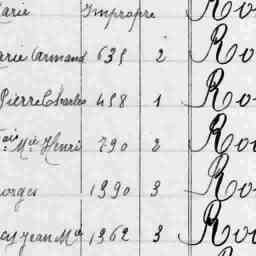 arie Impropre Ro
arie Armand 635 2 Ro
Pierre Charles 458 1 Ro
Fçois Mie Henri 790 2 Ro
orges 1990 3 Ro
Jean Mie 1962 3 Ro